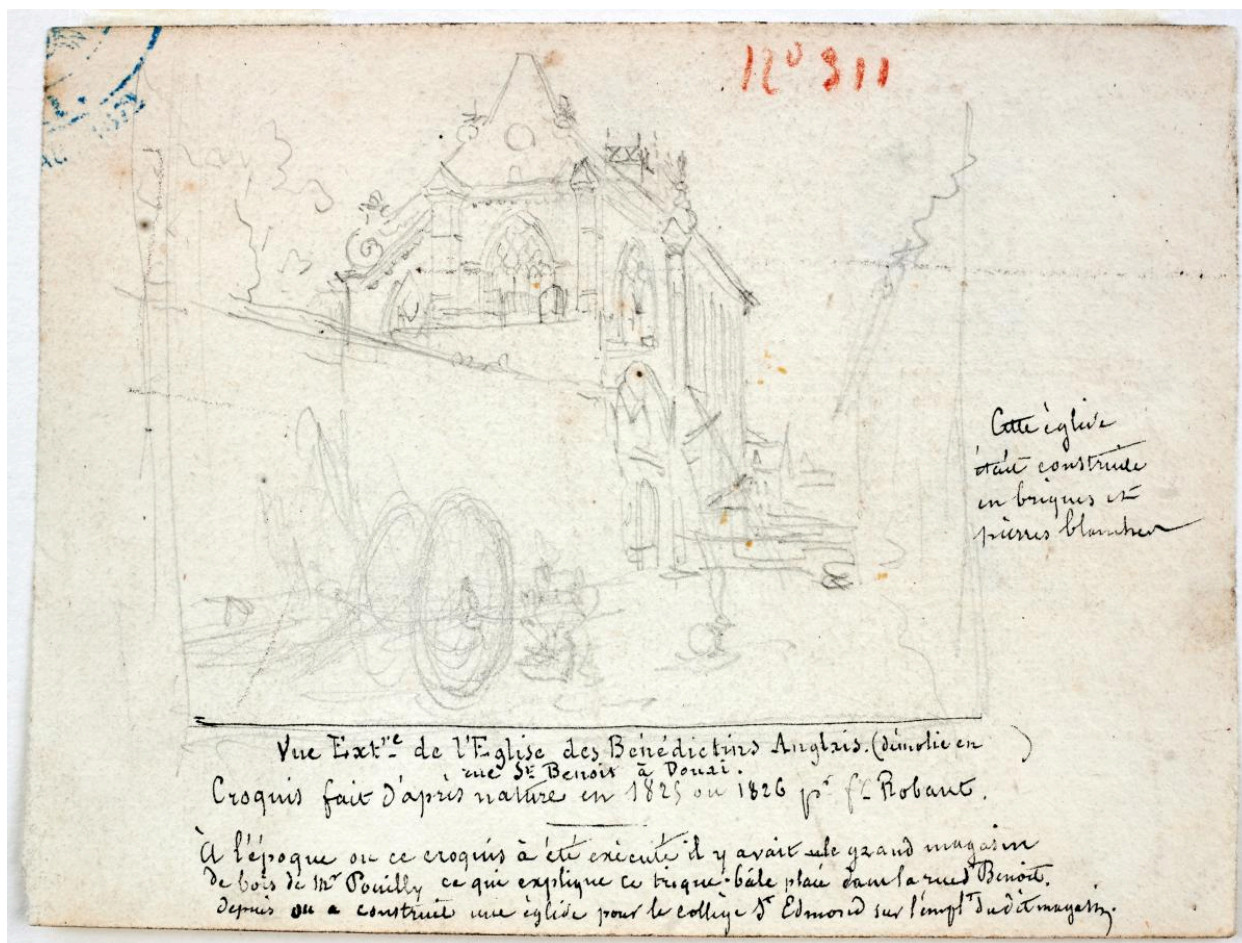 No 311
Cette église
était construite
en briques et
pierres blanches
Vue Extre de l'Eglise des Bénédictins Anglais. (démolie en )
rue St Benoit à Douai.
Croquis fait d'après nature en 1825 ou 1826 pr fx Robaut.
À l'époque ou ce croquis à été exécuté il y avait le grand magasin
de bois de Mr Pouilly ce qui explique ce trique-bâle placé dans la rue St Benoit.
depuis on a construit une église pour le collège St Edmond sur l'empl.t du dit magasin.